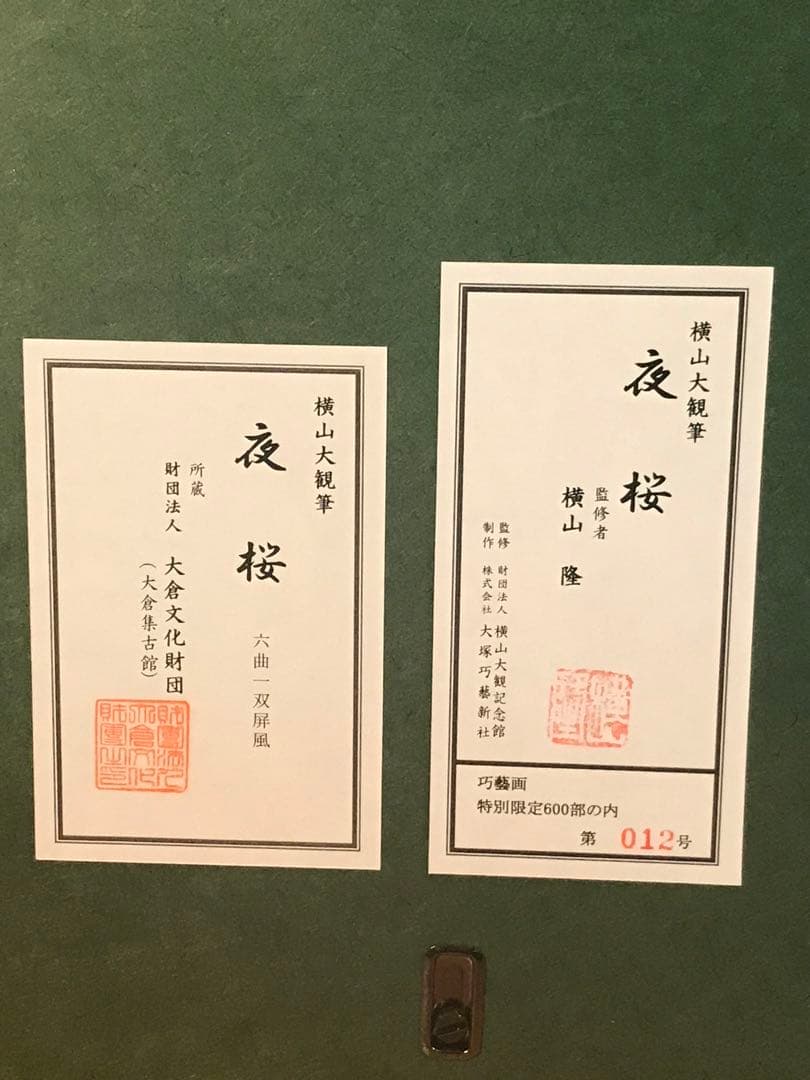 横山大観筆
夜桜
監修者
横山 隆
監修 財団法人 横山大観記念館
制作 株式会社 大塚巧藝新社
巧藝画
特別限定600部の内
第 012号
横山大観筆
夜桜
六曲一双屏風
所蔵
財団法人 大倉文化財団
(大倉集古館)